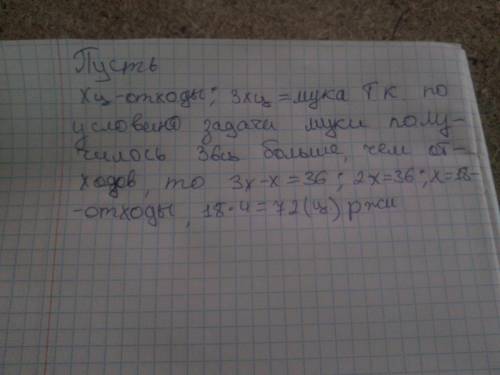 Пусть
Xц-отходы; 3хц=мука Т.к. по
условию задачи муки полу-
чилось 36ц больше, чем от-
ходов, то 3х-х=36; 2х=36; х=18-
-отходы, 18·4=72(ц) ржи